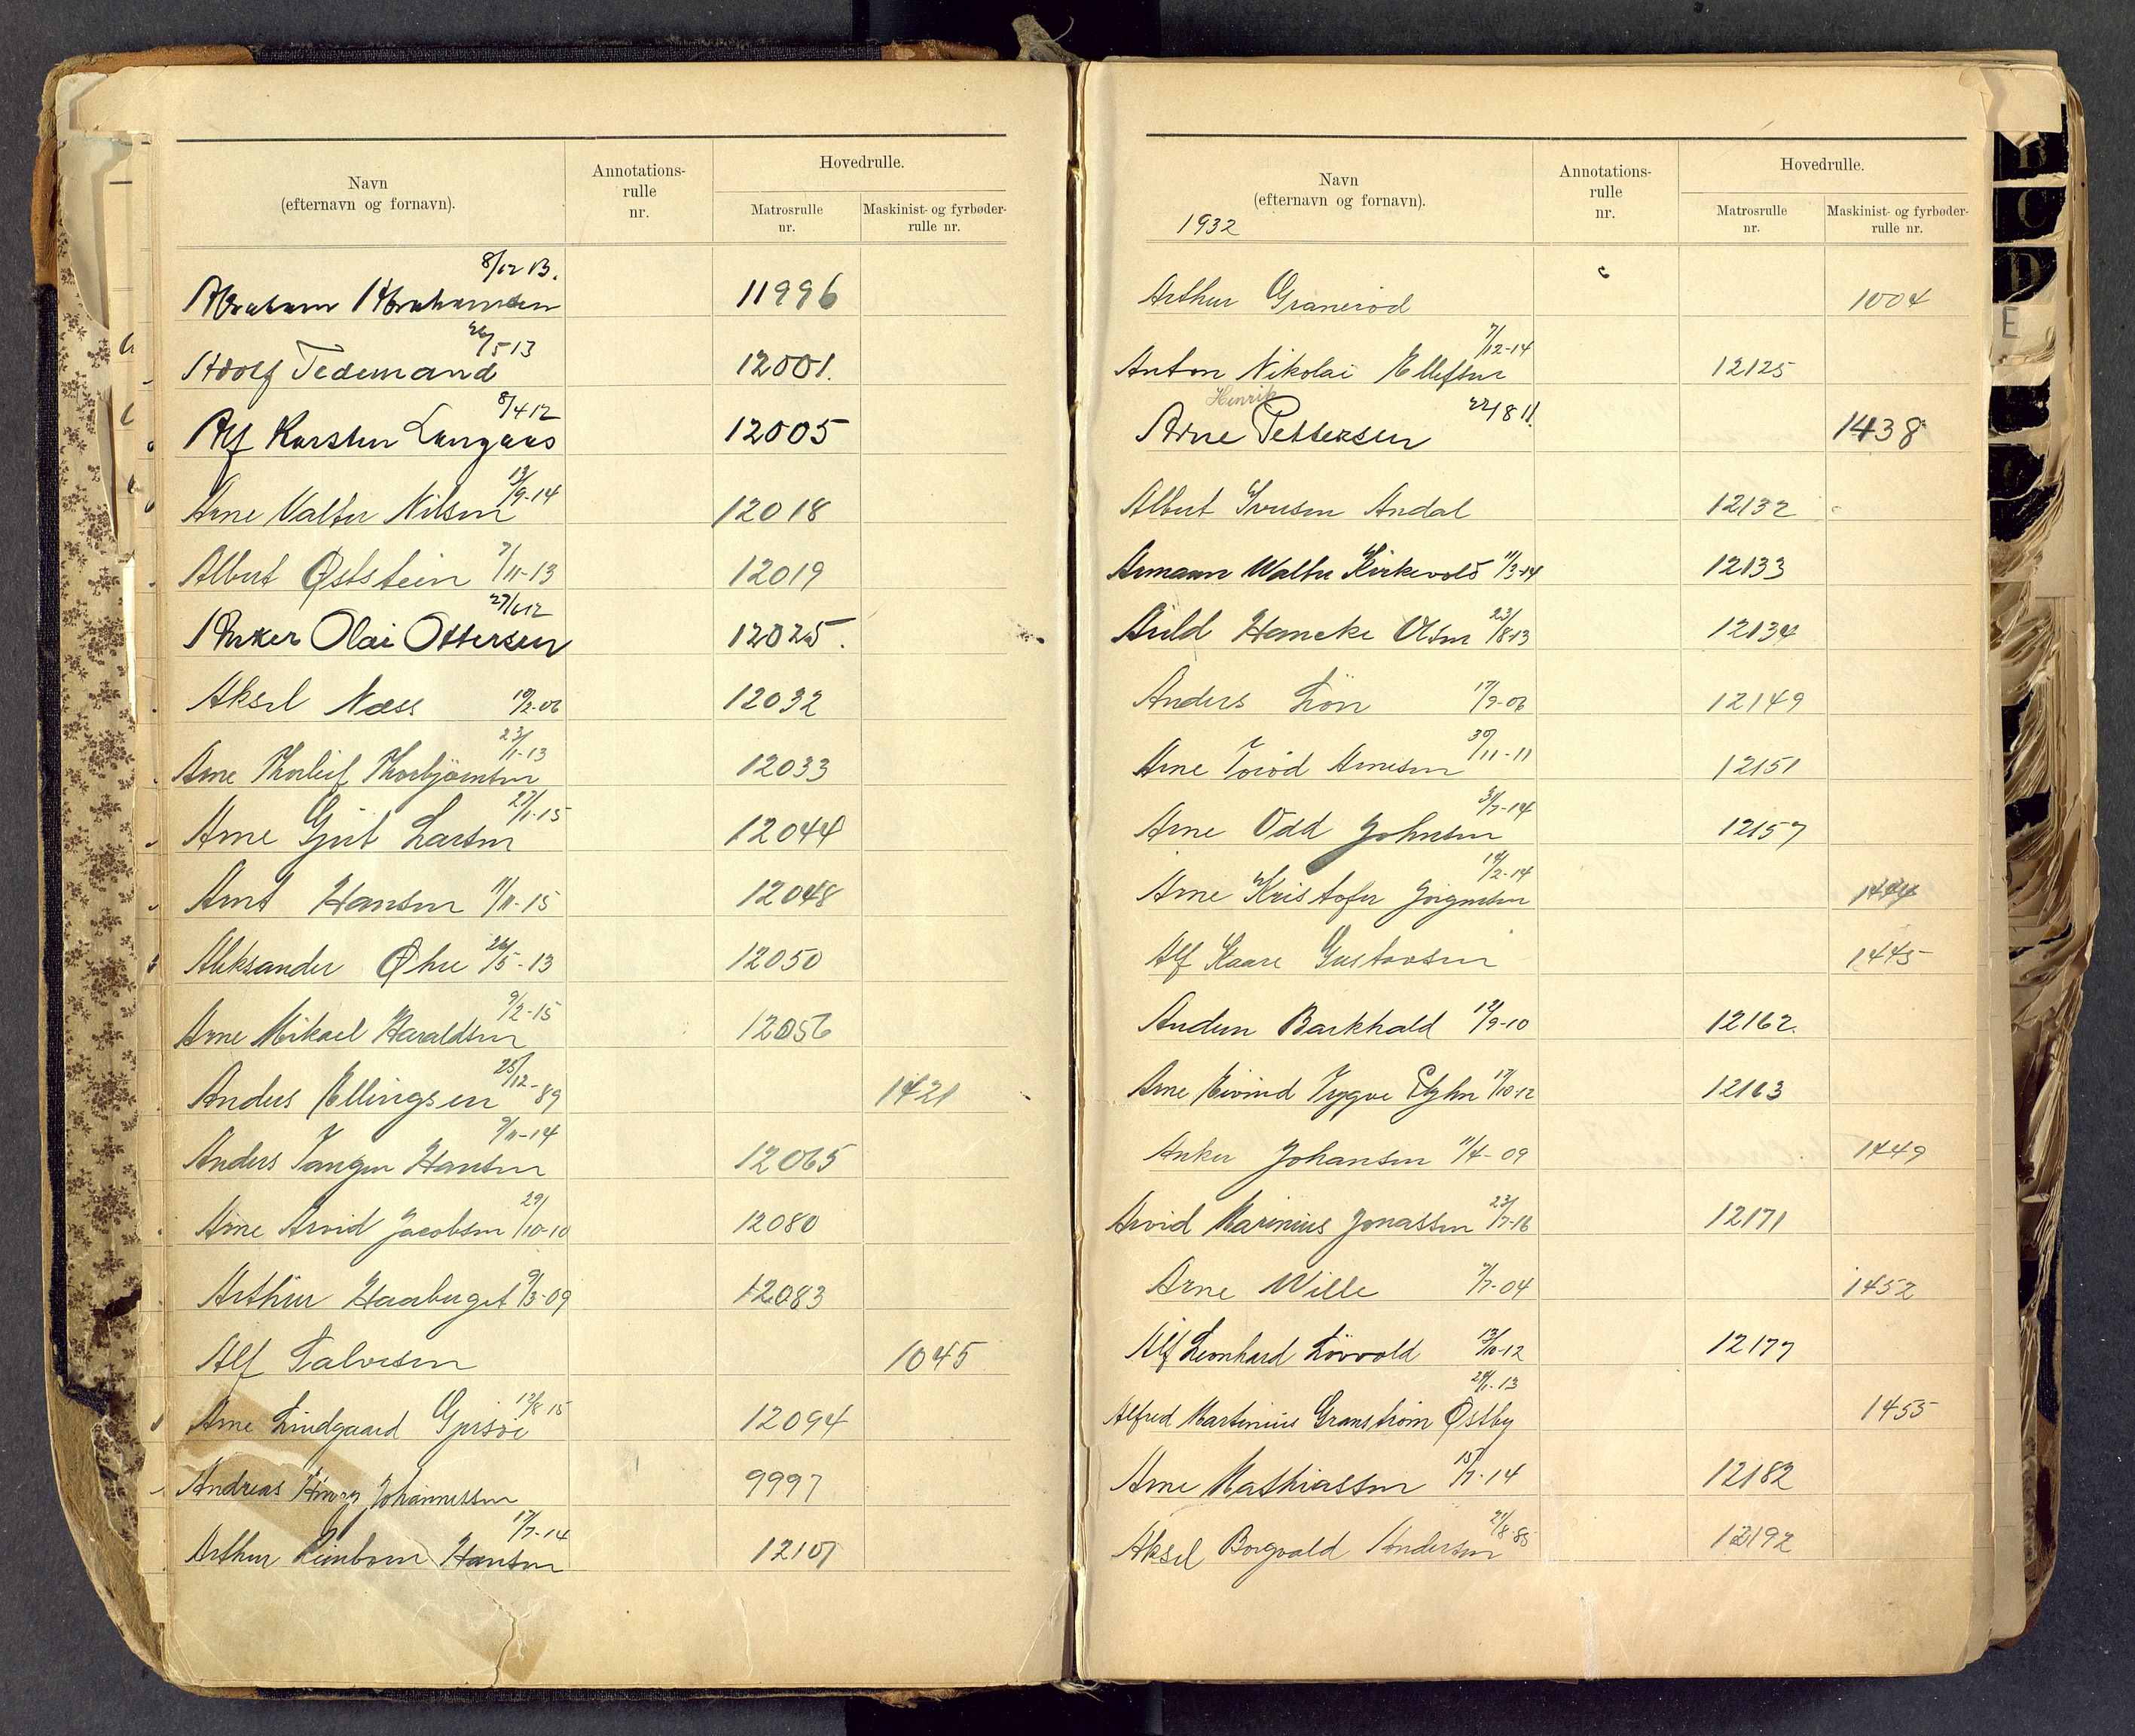 Navn
(efternavn og fornavn).
Annotations-
rulle
nr.
Hovedrulle.
Matrosrulle
nr.
Maskinist- og fyrbøder-
rulle nr.
Abraham Abrahamsen 8/12 13. 11996
Adolf Tedemand 26/5 13 12001.
Alf Karsten Langaas 8/4 12 12005
Arne Valter Nilsen 13/9-14 12018
Albert Øststein 7/11-13 12019
Anker Olai Ottersen 27/6 12 12025.
Aksel Næss 10/2-06 12032
Arne Thorleif Thorbjørnsen 23/1-13 12033
Arne Gjert Larsen 27/1-15 12044
Arnt Hansen 11/11-15 12048
Aleksander Øhre 26/5-13 12050
Arne Mikael Haraldsen 9/2-15 12056
Anders Ellingsen 25/12-89 1421
Anders Tangen Hansen 9/11-14 12065
Arne Arvid Jacobsen 29/10-10 12080
Arthur Haaberget 9/3-09 12083
Alf Salvesen 1045
Arne Lindgaard 12/8-15 12094
Andreas Henry Johannessen 9997
Arthur Reinborn Hansen 17/7-14 12107
Navn
(efternavn og fornavn).
1932
Annotations-
rulle
nr.
Hovedrulle.
Matrosrulle
nr.
Maskinist- og fyrbøder-
rulle nr.
Arthur Granerød 1004
Anton Nikolai Ellefsen 7/12-14 12125
Henrik
Arne Pettersen 22/8 11. 1438
Albert Iversen Andal 12132
Armann Walter Kirkevold 11/3-14 12133
Arild Hancke Olsen 23/8-13 12134
Anders Løn 17/9-06 12149
Arne Torød Arnesen 30/11-11 12151
Arne Odd Johnsen 31/7-14 12157
Arne Kristofer Jørgensen 14/2-14 1444
Alf Kaare Gustavsen 1445
Audun Barkhald 12/9-10 12162.
Arne Eivind Trygve 17/10-12 12163
Anker Johansen 11/4-09 1449
Arvid Marinius Jonassen 23/7-16 12171
Arne Wille 7/7-04 1452
Alf Leonhard Løvvold 13/10-12 12177
Alfred Martinius Granstrøm Østby 24/1-13 1455
Arne Mathiassen 15/7-14 12182
Aksel Borgvald Andersen 21/8-85 12192
B
C
D
E